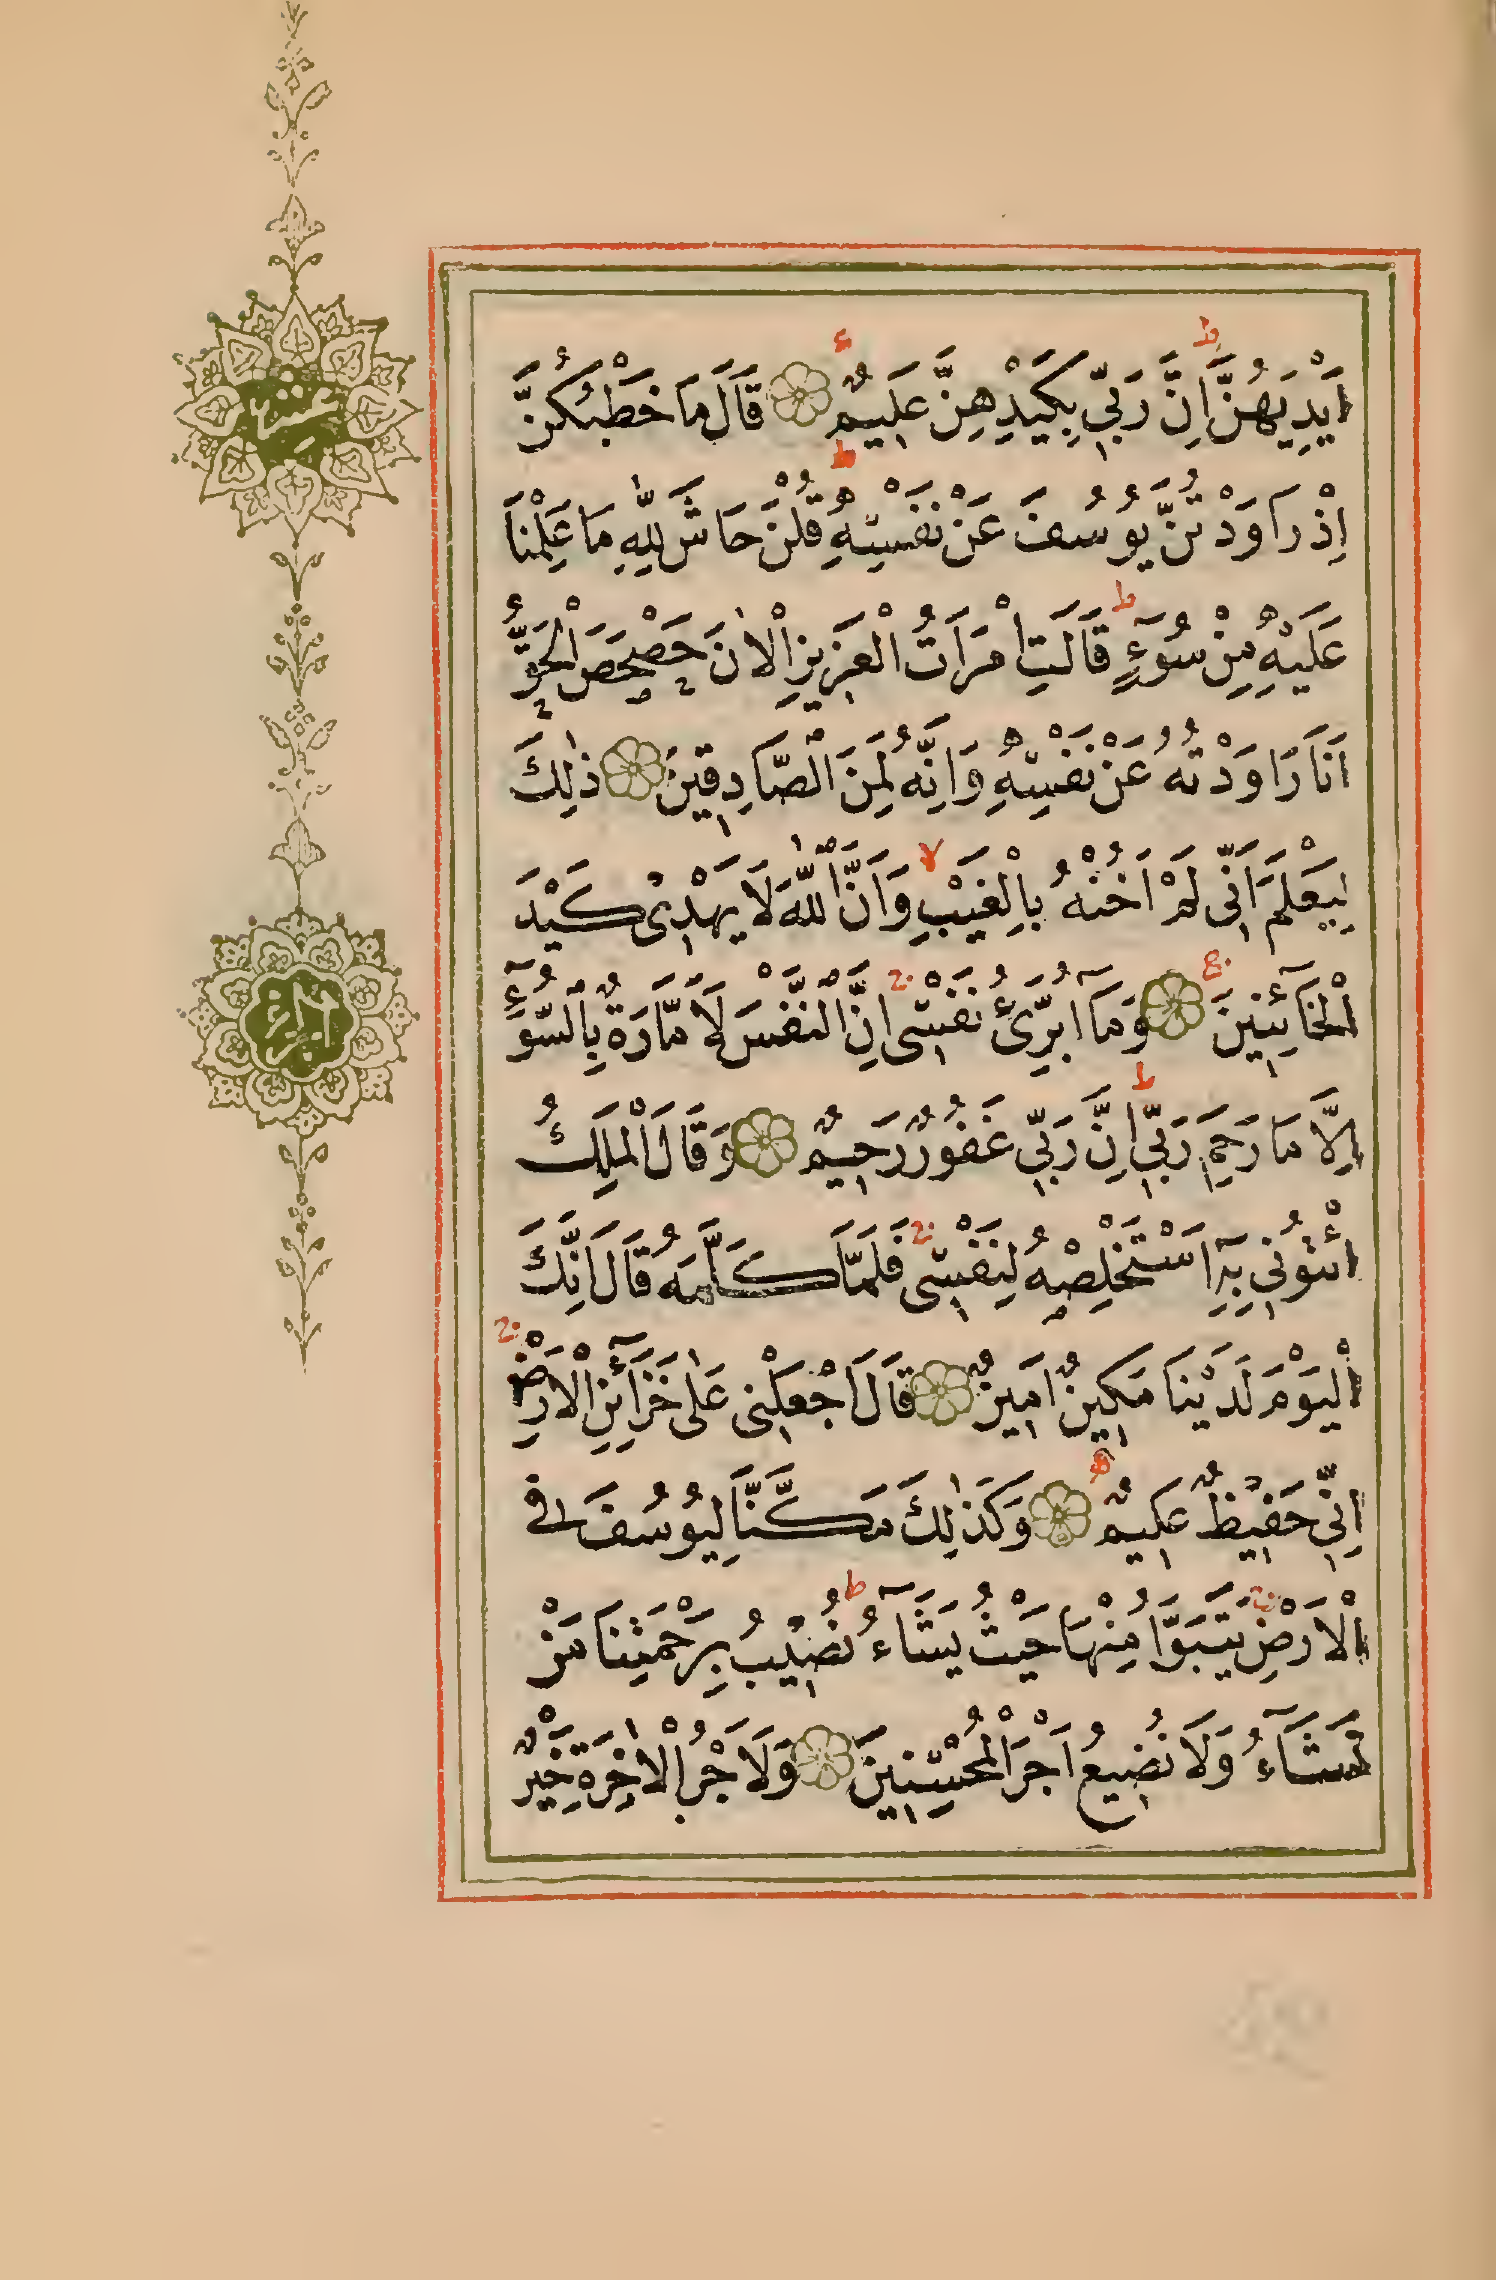 اَيْدِيَهُنَّ اِنَّ رَبّ۪ي بِكَيْدِهِنَّ عَل۪يمٌ قَالَ مَا خَطْبُكُنَّ
اِذْ رَاوَدْتُنَّ يُوسُفَ عَنْ نَفْسِه۪ۜ قُلْنَ حَاشَ لِلّٰهِ مَا عَلِمْنَا
عَلَيْهِ مِنْ سُٓوءٍ قَالَتِ امْرَاَتُ الْعَز۪يزِ الْاٰنَ حَصْحَصَ الْحَقُّ
اَنَا۬ رَاوَدْتُهُ عَنْ نَفْسِه۪ وَاِنَّهُ لَمِنَ الصَّادِق۪ينَ ذٰلِكَ
لِيَعْلَمَ اَنّ۪ي لَمْ اَخُنْهُ بِالْغَيْبِ وَاَنَّ اللّٰهَ لَا يَهْد۪ي كَيْدَ
الْخَٓائِن۪ينَ وَمَٓا اُبَرِّئُ نَفْس۪ي اِنَّ النَّفْسَ لَاَمَّارَةٌ بِالسُّٓوءِ
اِلَّا مَا رَحِمَ رَبّ۪ي اِنَّ رَبّ۪ي غَفُورٌ رَح۪يمٌ وَقَالَ الْمَلِكُ
ائْتُون۪ي بِه۪ٓ اَسْتَخْلِصْهُ لِنَفْس۪ي فَلَمَّا كَلَّمَهُ قَالَ اِنَّكَ
الْيَوْمَ لَدَيْنَا مَك۪ينٌ اَم۪ينٌ قَالَ اجْعَلْن۪ي عَلٰى خَزَٓائِنِ الْاَرْضِ
اِنّ۪ي حَف۪يظٌ عَل۪يمٌ وَكَذٰلِكَ مَكَّنَّا لِيُوسُفَ فِي
الْاَرْضِ يَتَبَوَّاُ مِنْهَا حَيْثُ يَشَٓاءُ نُص۪يبُ بِرَحْمَتِنَا مَنْ
نَشَٓاءُ وَلَا نُض۪يعُ اَجْرَ الْمُحْسِن۪ينَ وَلَاَجْرُ الْاٰخِرَةِ خَيْرٌ